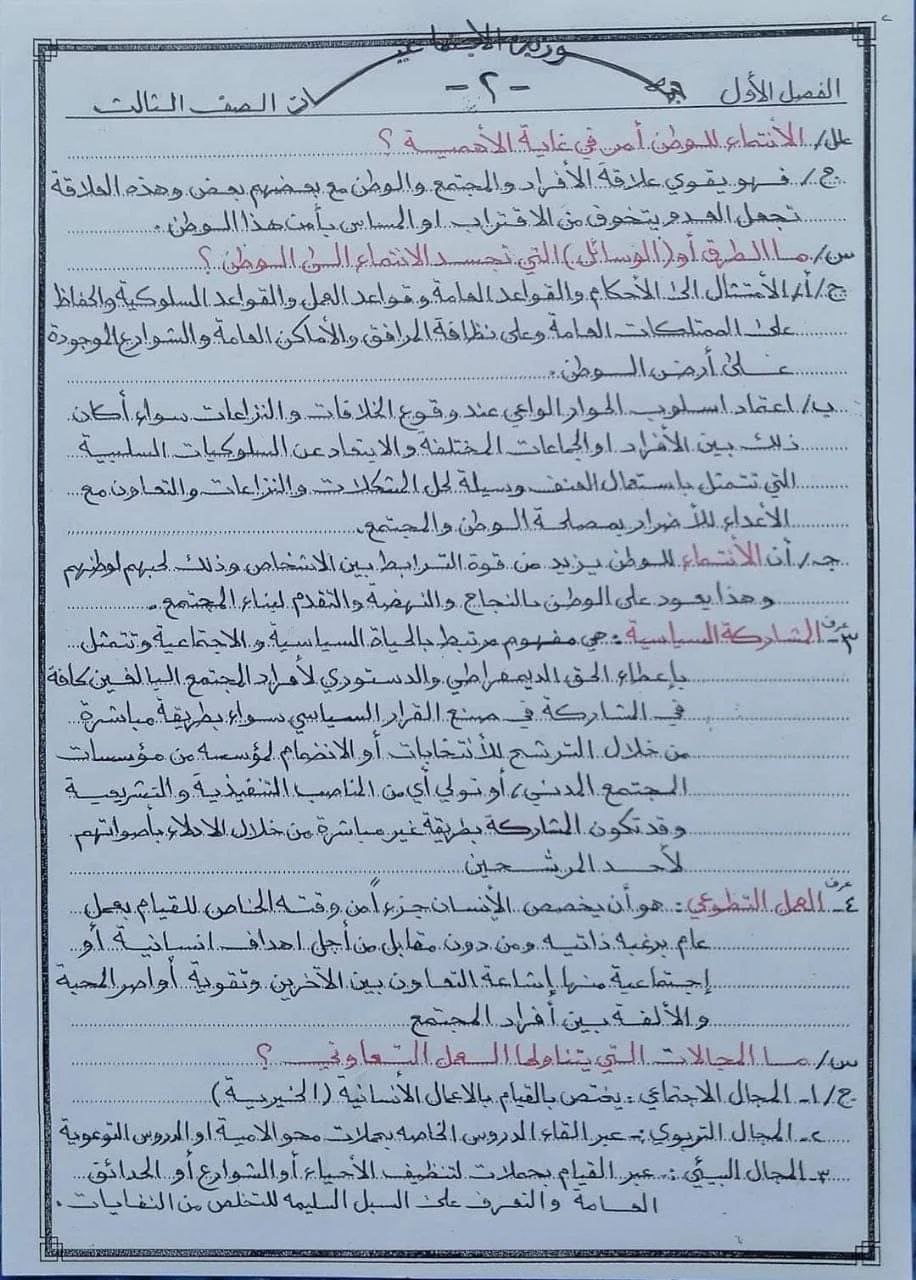 وزيري الاجتماعيات
الفصل الأول -٢- الصف الثالث
علل/ الأنتماء للوطن أمر في غاية الأهمية ؟
ج/ فهو يقوي علاقة الأفراد والمجتمع والوطن مع بعضهم بعض وهذه العلاقة
تجعل العدو يتخوف من الاقتراب او المساس بأمن هذا الوطن .
س/ ما الطرق أو (الوسائل) التي تجسد الانتماء الى الوطن ؟
ج/أ/ الأمتثال الى الأحكام والقواعد العامة وقواعد العمل والقواعد السلوكية والحفاظ
على الممتلكات العامة وعلى نظافة المرافق والأماكن العامة والشوارع الموجودة
على أرض الوطن .
ب/ اعتماد اسلوب الحوار الواعي عند وقوع الخلافات والنزاعات سواء أكان
ذلك بين الأفراد او الجماعات المختلفة والابتعاد عن السلوكيات السلبية
التي تتمثل باستعمال العنف وسيلة لحل المشكلات والنزاعات والتعاون مع
الأعداء للأضرار بمصلحة الوطن والمجتمع .
جـ/ أن الأنتماء للوطن يزيد من قوة الترابط بين الاشخاص وذلك لحبهم لوطنهم
وهذا يعود على الوطن بالنجاح والنهضة والتقدم لبناء المجتمع .
عرف
٣- المشاركة السياسية : هي مفهوم مرتبط بالحياة السياسية والاجتماعية وتتمثل
بإعطاء الحق الديمقراطي والدستوري لأفراد المجتمع البالغين كافة
في المشاركة في صنع القرار السياسي سواء بطريقة مباشرة
من خلال الترشح للأنتخابات أو الانضمام لمؤسسه من مؤسسات
المجتمع المدني/ أو تولي أي من المناصب التنفيذية والتشريعية
وقد تكون المشاركة بطريقة غير مباشرة من خلال الادلاء بأصواتهم
لأحد المرشحين
عرف
٤- العمل التطوعي : هو أن يخصص الأنسان جزءاً من وقته الخاص للقيام بعمل
عام برغبه ذاتيه ومن دون مقابل من أجل اهداف انسانية أو
إجتماعية منها إشاعة التعاون بين الآخرين وتقوية أواصر المحبة
والألفة بين أفراد المجتمع
س/ ما المجالات التي يتناولها العمل التعاوني ؟
ج/١- المجال الاجتماعي : يختص بالقيام بالاعمال الأنسانية (الخيرية)
٢- المجال التربوي :- عبر القاء الدروس الخاصه بحملات محو الامية او الدروس التوعوية
٣- المجال البيئي :. عبر القيام بحملات لتنظيف الأحياء أو الشوارع أو الحدائق
العامة والتعرف على السبل السليمه للتخلص من النفايات .